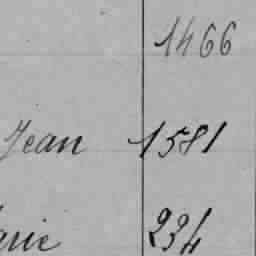 1466
Jean 1581
234